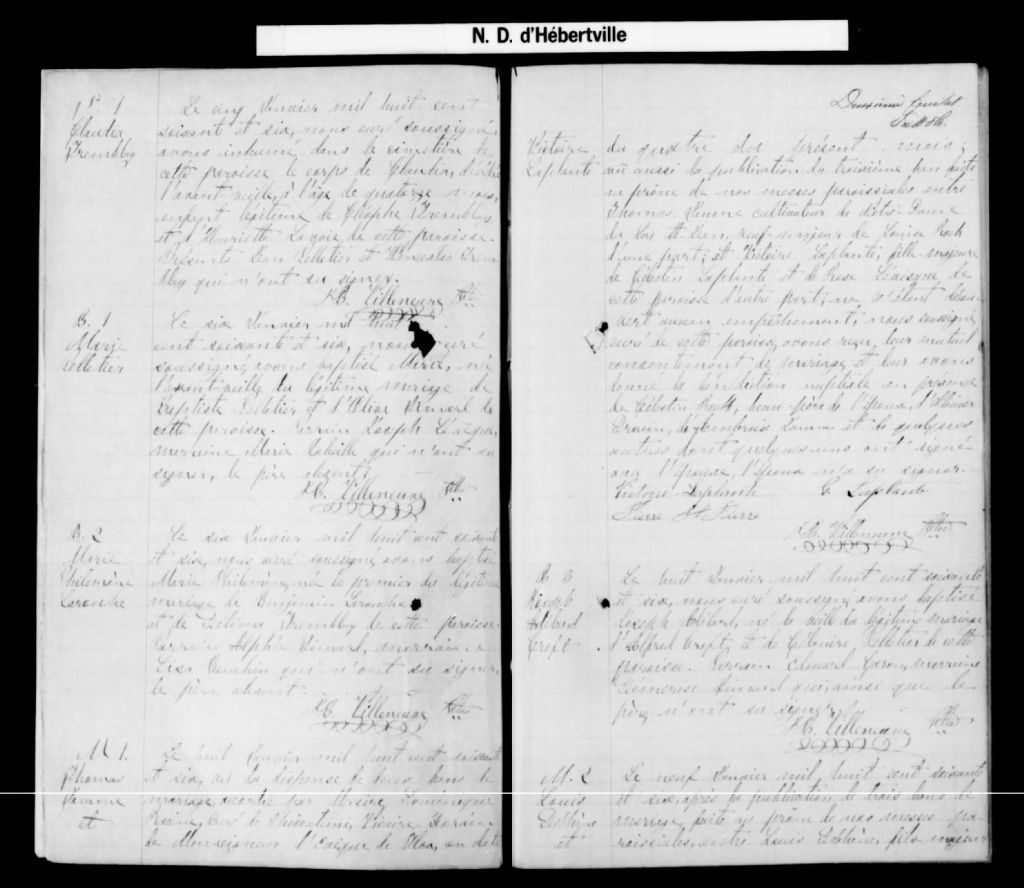 N. D. d'Hébertville
S. 1
Claudia
Tremblay
Le cinq Janvier mil huit cent
soixante et six, nous curé soussigné
avons inhumé dans le cimetière de
cette paroisse le corps de Claudia, décédée
l'avant veille, à l'âge de quatorze mois,
enfant légitime de Cléophe Tremblay
et d'Henriette de cette paroisse.
Présents Jean Pelletier et Trem
blay qui n'ont su signer.
Villeneuve Ptre
B. 1
Marie
Pelletier
Le six Janvier mil huit
cent soixante et six, nous curé
soussigné, avons baptisé Marie, née
l'avant-veille du légitime mariage de
Baptiste Pelletier et d' Simard de
cette paroisse. Parrain Joseph Lévesque,
marraine Marie qui n'ont su
signer, le père absent.
Villeneuve Ptre
B. 2
Marie
Philomène
Larouche
Le six Janvier mil huit cent soixante
et six, nous curé soussigné avons baptisé
Marie Philomène, née le premier du légitime
mariage de Benjamin Larouche
et de Tremblay de cette paroisse.
Parrain Alphée Simard, marraine
qui n'ont su signer,
le père absent.
Villeneuve Ptre
M 1.
Thomas
et
Le huit Janvier mil huit cent soixante
et six, vu la dispense de deux bans de
mariage accordée par Messire Dominique
Racine, curé de Chicoutimi, Vicaire Forain
de Monseigneur l'Evêque de en date
Deuxième feuillet
Victoire
Laplante
du quatre du présent mois;
vu aussi la publication du troisième ban faite
au prône de nos messes paroissiales entre
Thomas cultivateur de Notre-Dame
du Lac St. Jean, veuf-majeur de Louise
d'une part; et Victoire Laplante, fille-majeure
de Célestin Laplante et de Rose Lévesque de
cette paroisse d'autre part; ne s'étant décou-
vert aucun empêchement, nous soussigné,
curé de cette paroisse, avons reçu leur mutuel
consentement de mariage et leur avons
donné la bénédiction nuptiale en présence
de Célestin beau-père de l'époux, d'
d'Ambroise et de quelques
autres dont quelques uns ont signé
avec l'épouse, l'époux n'a su signer.
Victoire Laplante G. Laplante
Pierre St Pierre
Villeneuve Ptre
B. 3
Joseph
Croft
Le huit Janvier mil huit cent soixante
et six, nous curé soussigné avons baptisé
Joseph né la veille du légitime mariage
d'Alfred Croft et de Pelletier de cette
paroisse. Parrain Edouard marraine
Simard qui, ainsi que le
père, n'ont su signer.
Villeneuve Ptre
M. 2
Louis
et
Le neuf Janvier mil huit cent soixante
et six, après la publication de trois bans de
mariage, faite au prône de nos messes pa-
roissiales, entre Louis fils majeur